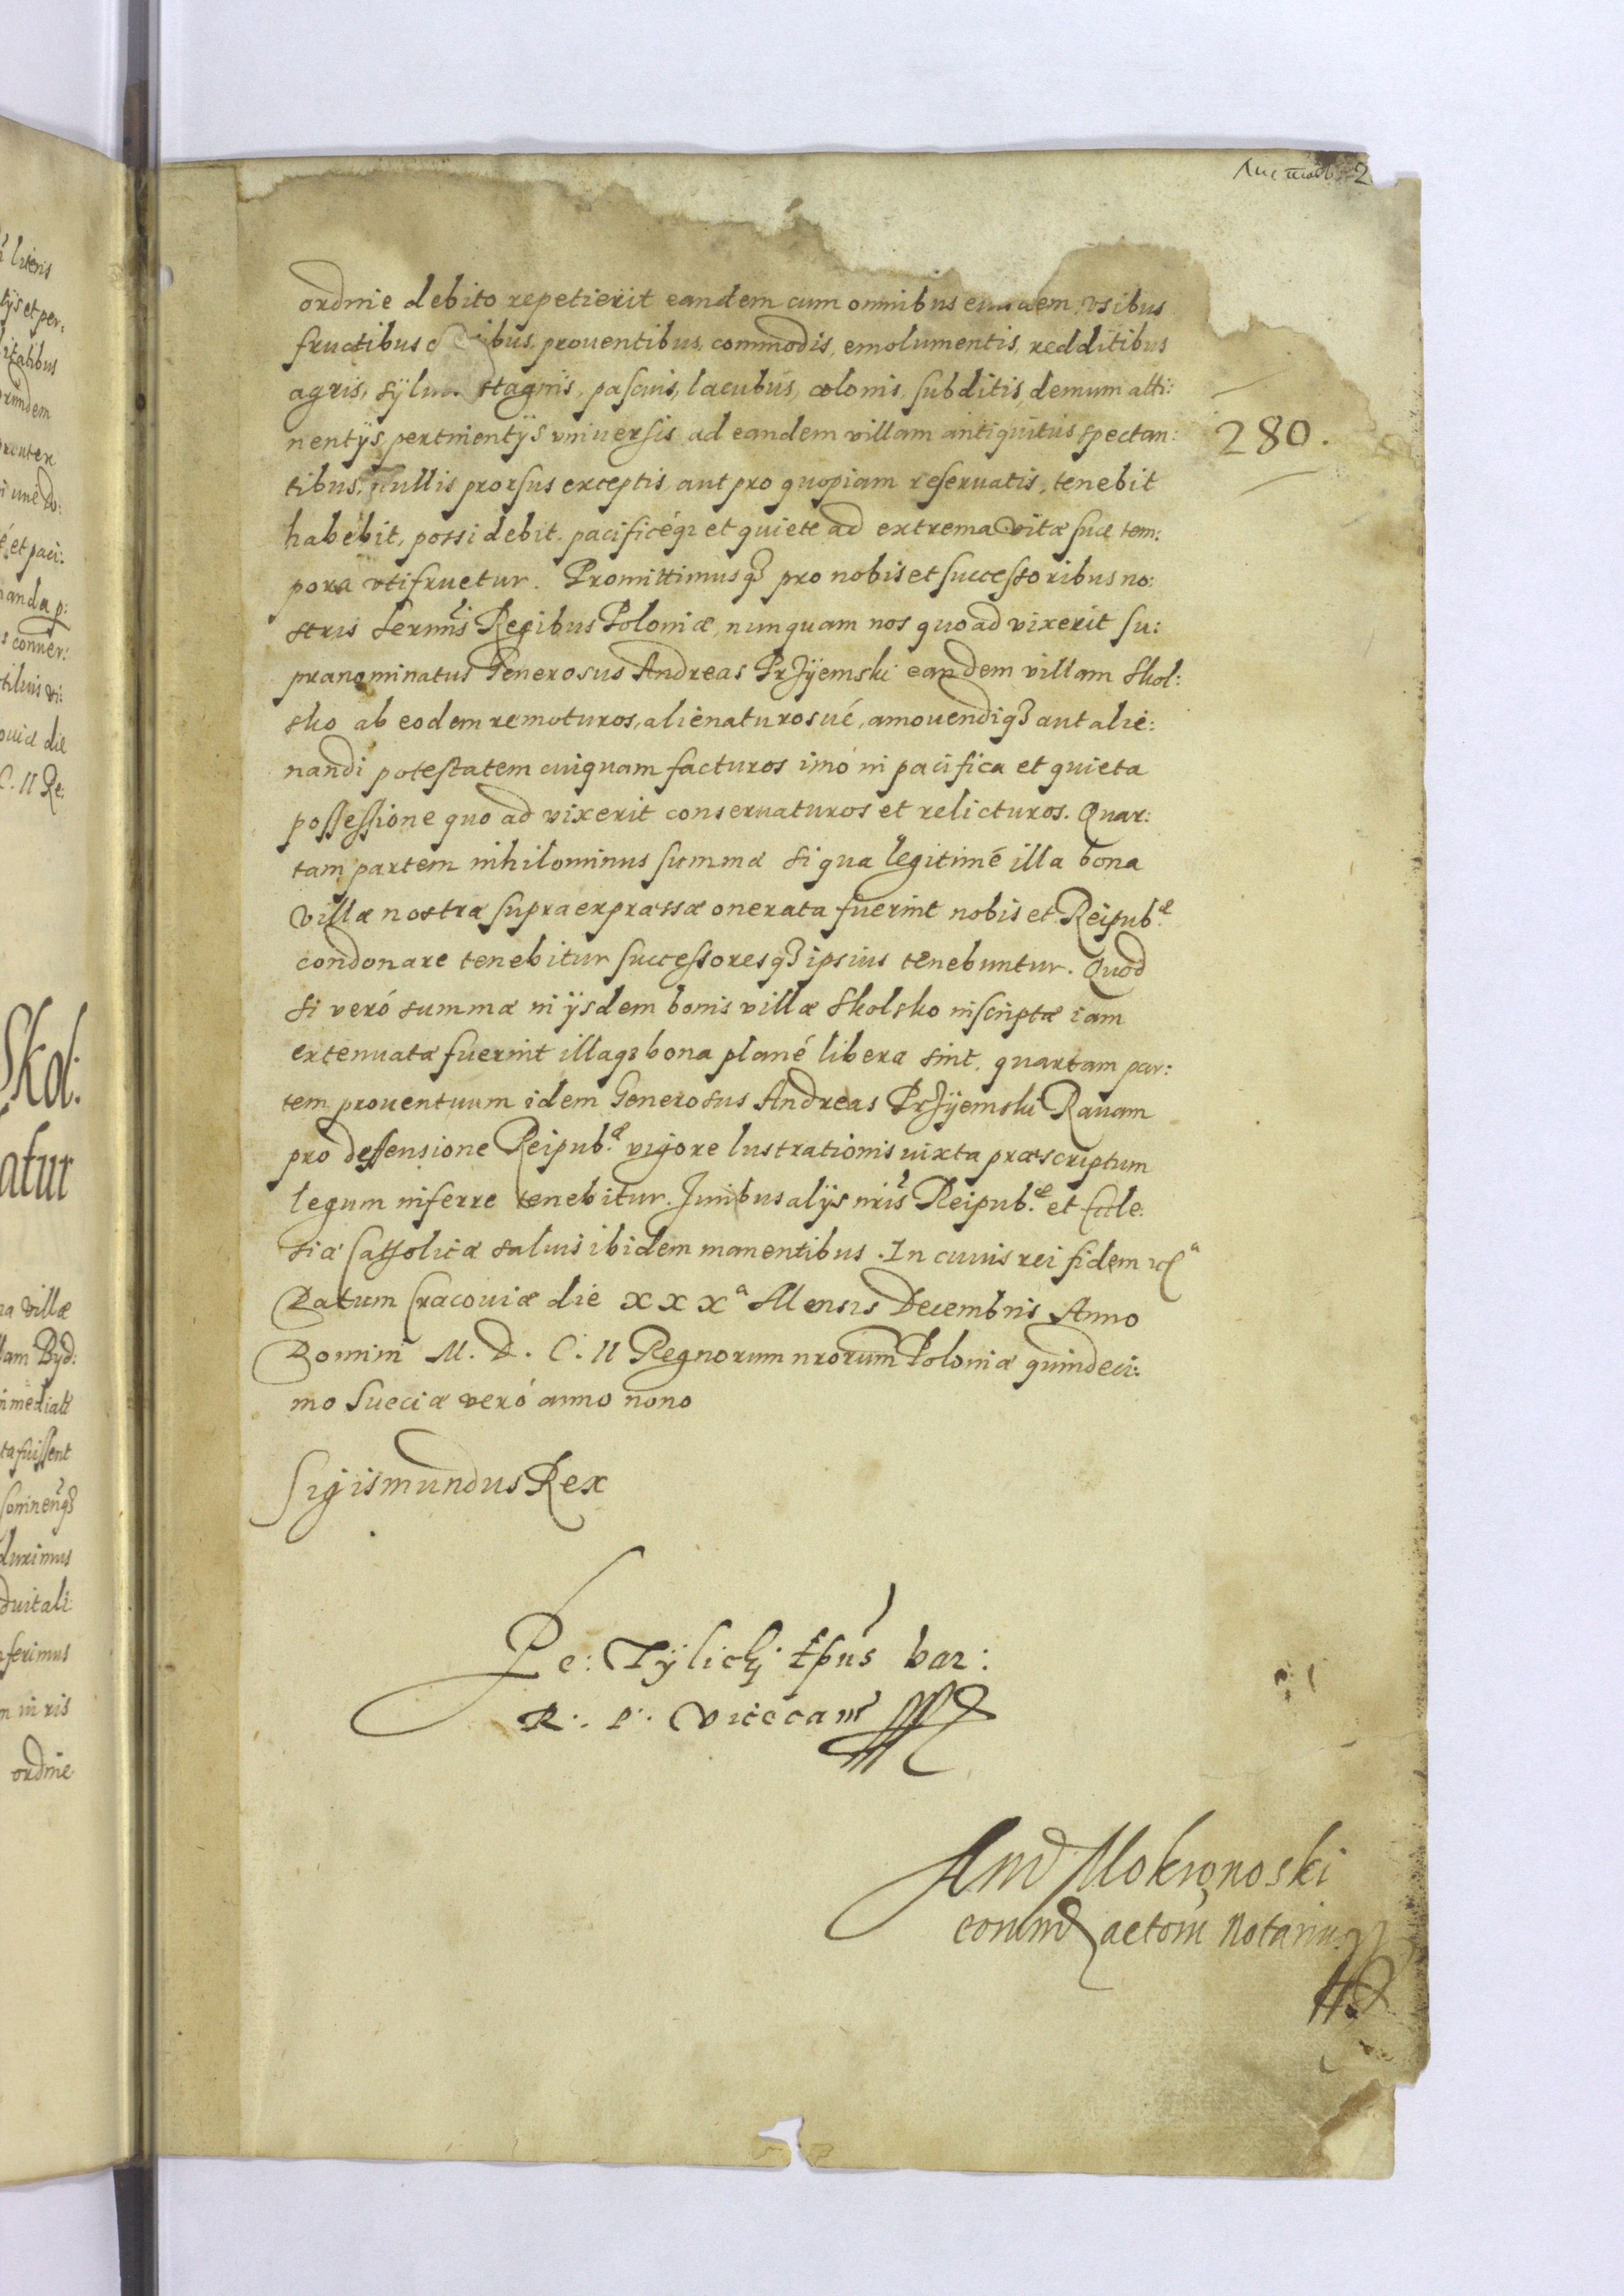 Листовъ 2
ordine debito repetierit eandem cum omnibus eiusdem vsibus
fructibus proventibus, commodis, emolumentis, redditibus
agris, sÿluis stagnis, pascuis, lacubus, colonis, subditis, demum atti:
nentÿs, pertinentÿs vniuersis ad eandem villam antiquitus spectan:
tibus, nullis prorsus exceptis aut pro quopiam reseruatis, tenebit
habebit, possidebit, pacificéq3 et quiete ad extrema vitæ suæ tem:
pora vtifruetur. Promittimusq3 pro nobis et successoribus no:
stris Sermis Regibus Poloniæ, nunquam nos quo ad vixerit su:
pranominatus Generosus Andreas Przÿemski eandem villam Skol:
sko ab eodem remoturos, alienaturosué, amouendiq3 aut alie:
nandi potestatem cuiquam facturos imó in pacifica et quieta
possessione quo ad vixerit conseruaturos et relicturos. Quar:
tam partem nihilominus summæ si qua legitimé illa bona
villæ nostræ supraexpræssæ onerata fuerint nobis et Reipub.æ
condonare tenebitur successoresq3 ipsius tenebuntur. Quod
si veró summæ in ÿsdem bonis villæ Skolsko inscriptæ iam
extenuatæ fuerint illaq3 bona plané libera sint, quartam par:
tem prouentuum idem Generosus Andreas Przÿemski Rauam
pro deffensione Reipub.æ vigore lustrationis iuxta præscriptum
legum inferre tenebitur. Iuribus alÿs nris Reipub.æ et Eccle:
siæ Catholicæ saluis ibidem manentibus. In cuius rei fidem
Datum Cracouiæ die XXXa Mensis Decembris Anno
Domini M. D. C. II Regnorum nrorum Poloniæ quindeci:
mo Sueciæ veró anno nono
Sigismundus Rex
Pe: Tÿlicki Epus
R. P. Vicecan
And Mokronoski
eorumd actorũ Notarius
280.